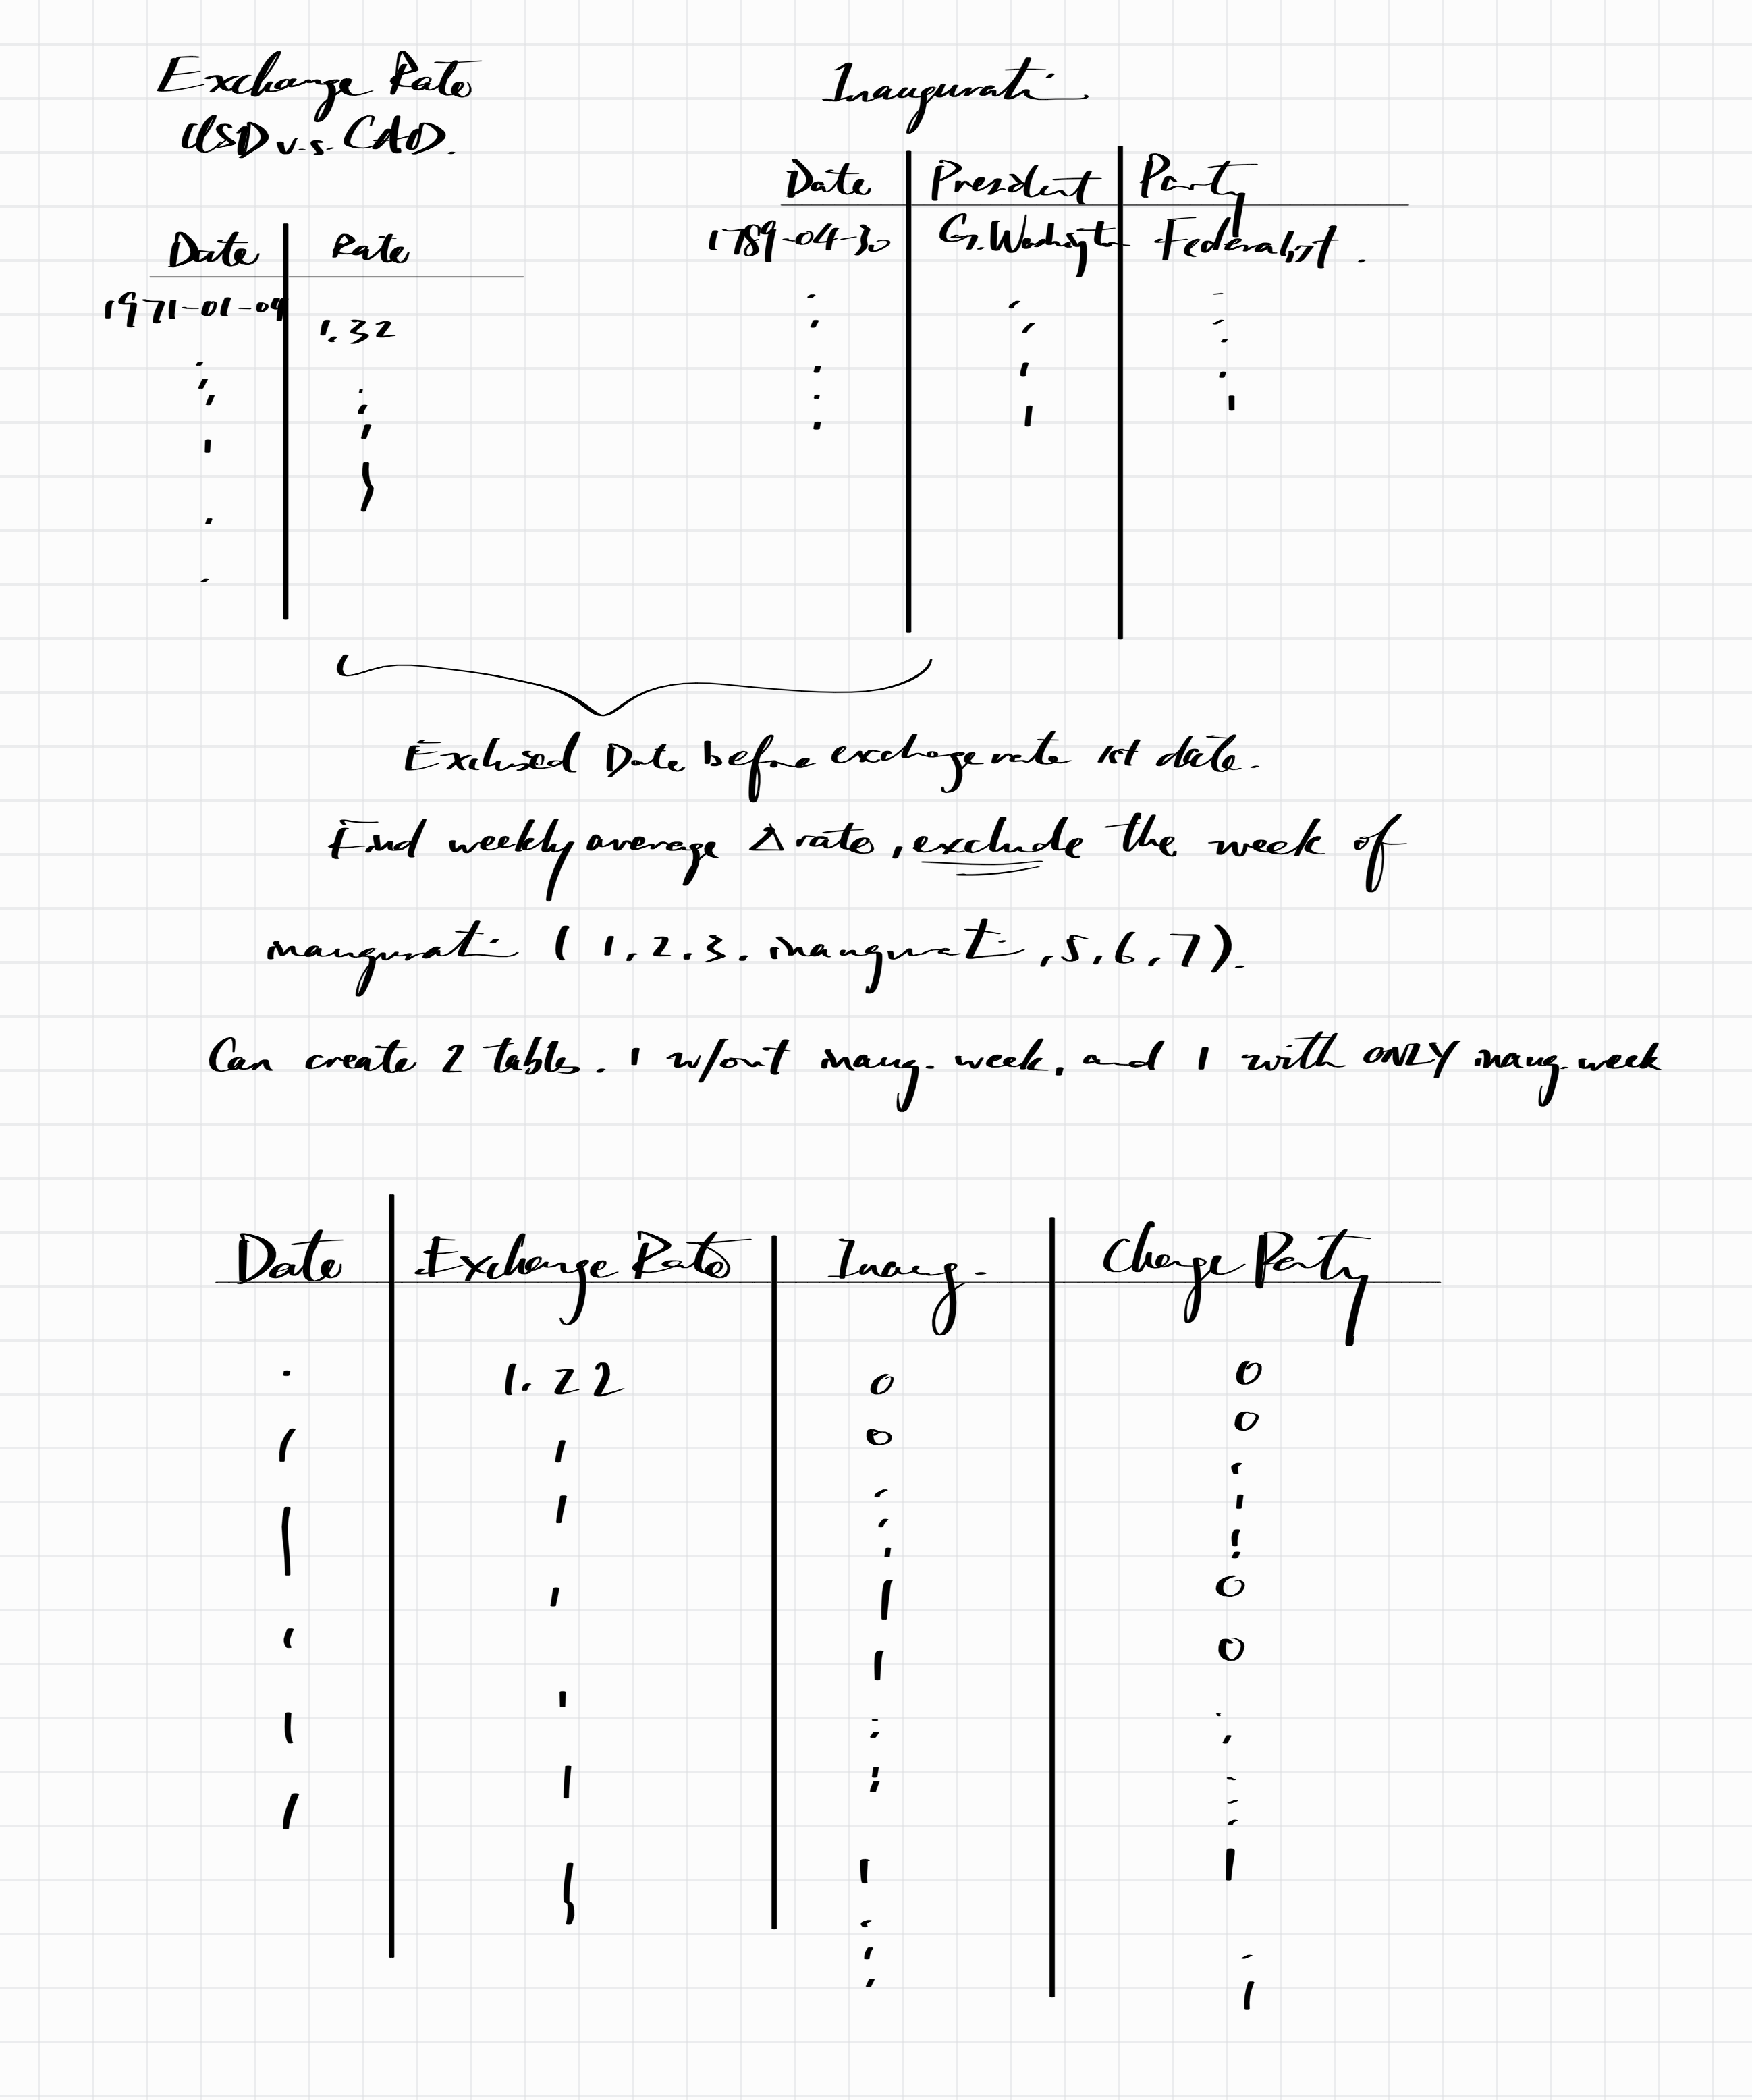 Exchange Rate
USD v.s. CAD.
Date Rate
1971-01-04
1.32
Inaugurati
Date President Party
1789-04-30 G. Washington Federalist.
Exclused Date before exchange rate 1st date.
Find weekly average Δ rate, exclude the week of
inaugurati ( 1, 2, 3, inaugurati, 5, 6, 7 ).
Can create 2 tables. 1 w/out inaug. week, and 1 with ONLY inaug. week
Date Exchange Rate Inaug. Change Party
1.22 0 0
0 0
1 0
1 0
1 1
1